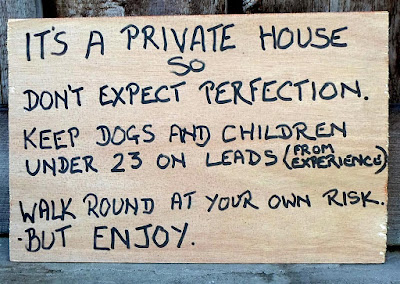 IT'S A PRIVATE HOUSE
SO
DON'T EXPECT PERFECTION.
KEEP DOGS AND CHILDREN
UNDER 23 ON LEADS (FROM EXPERIENCE)
WALK ROUND AT YOUR OWN RISK.
-BUT ENJOY.